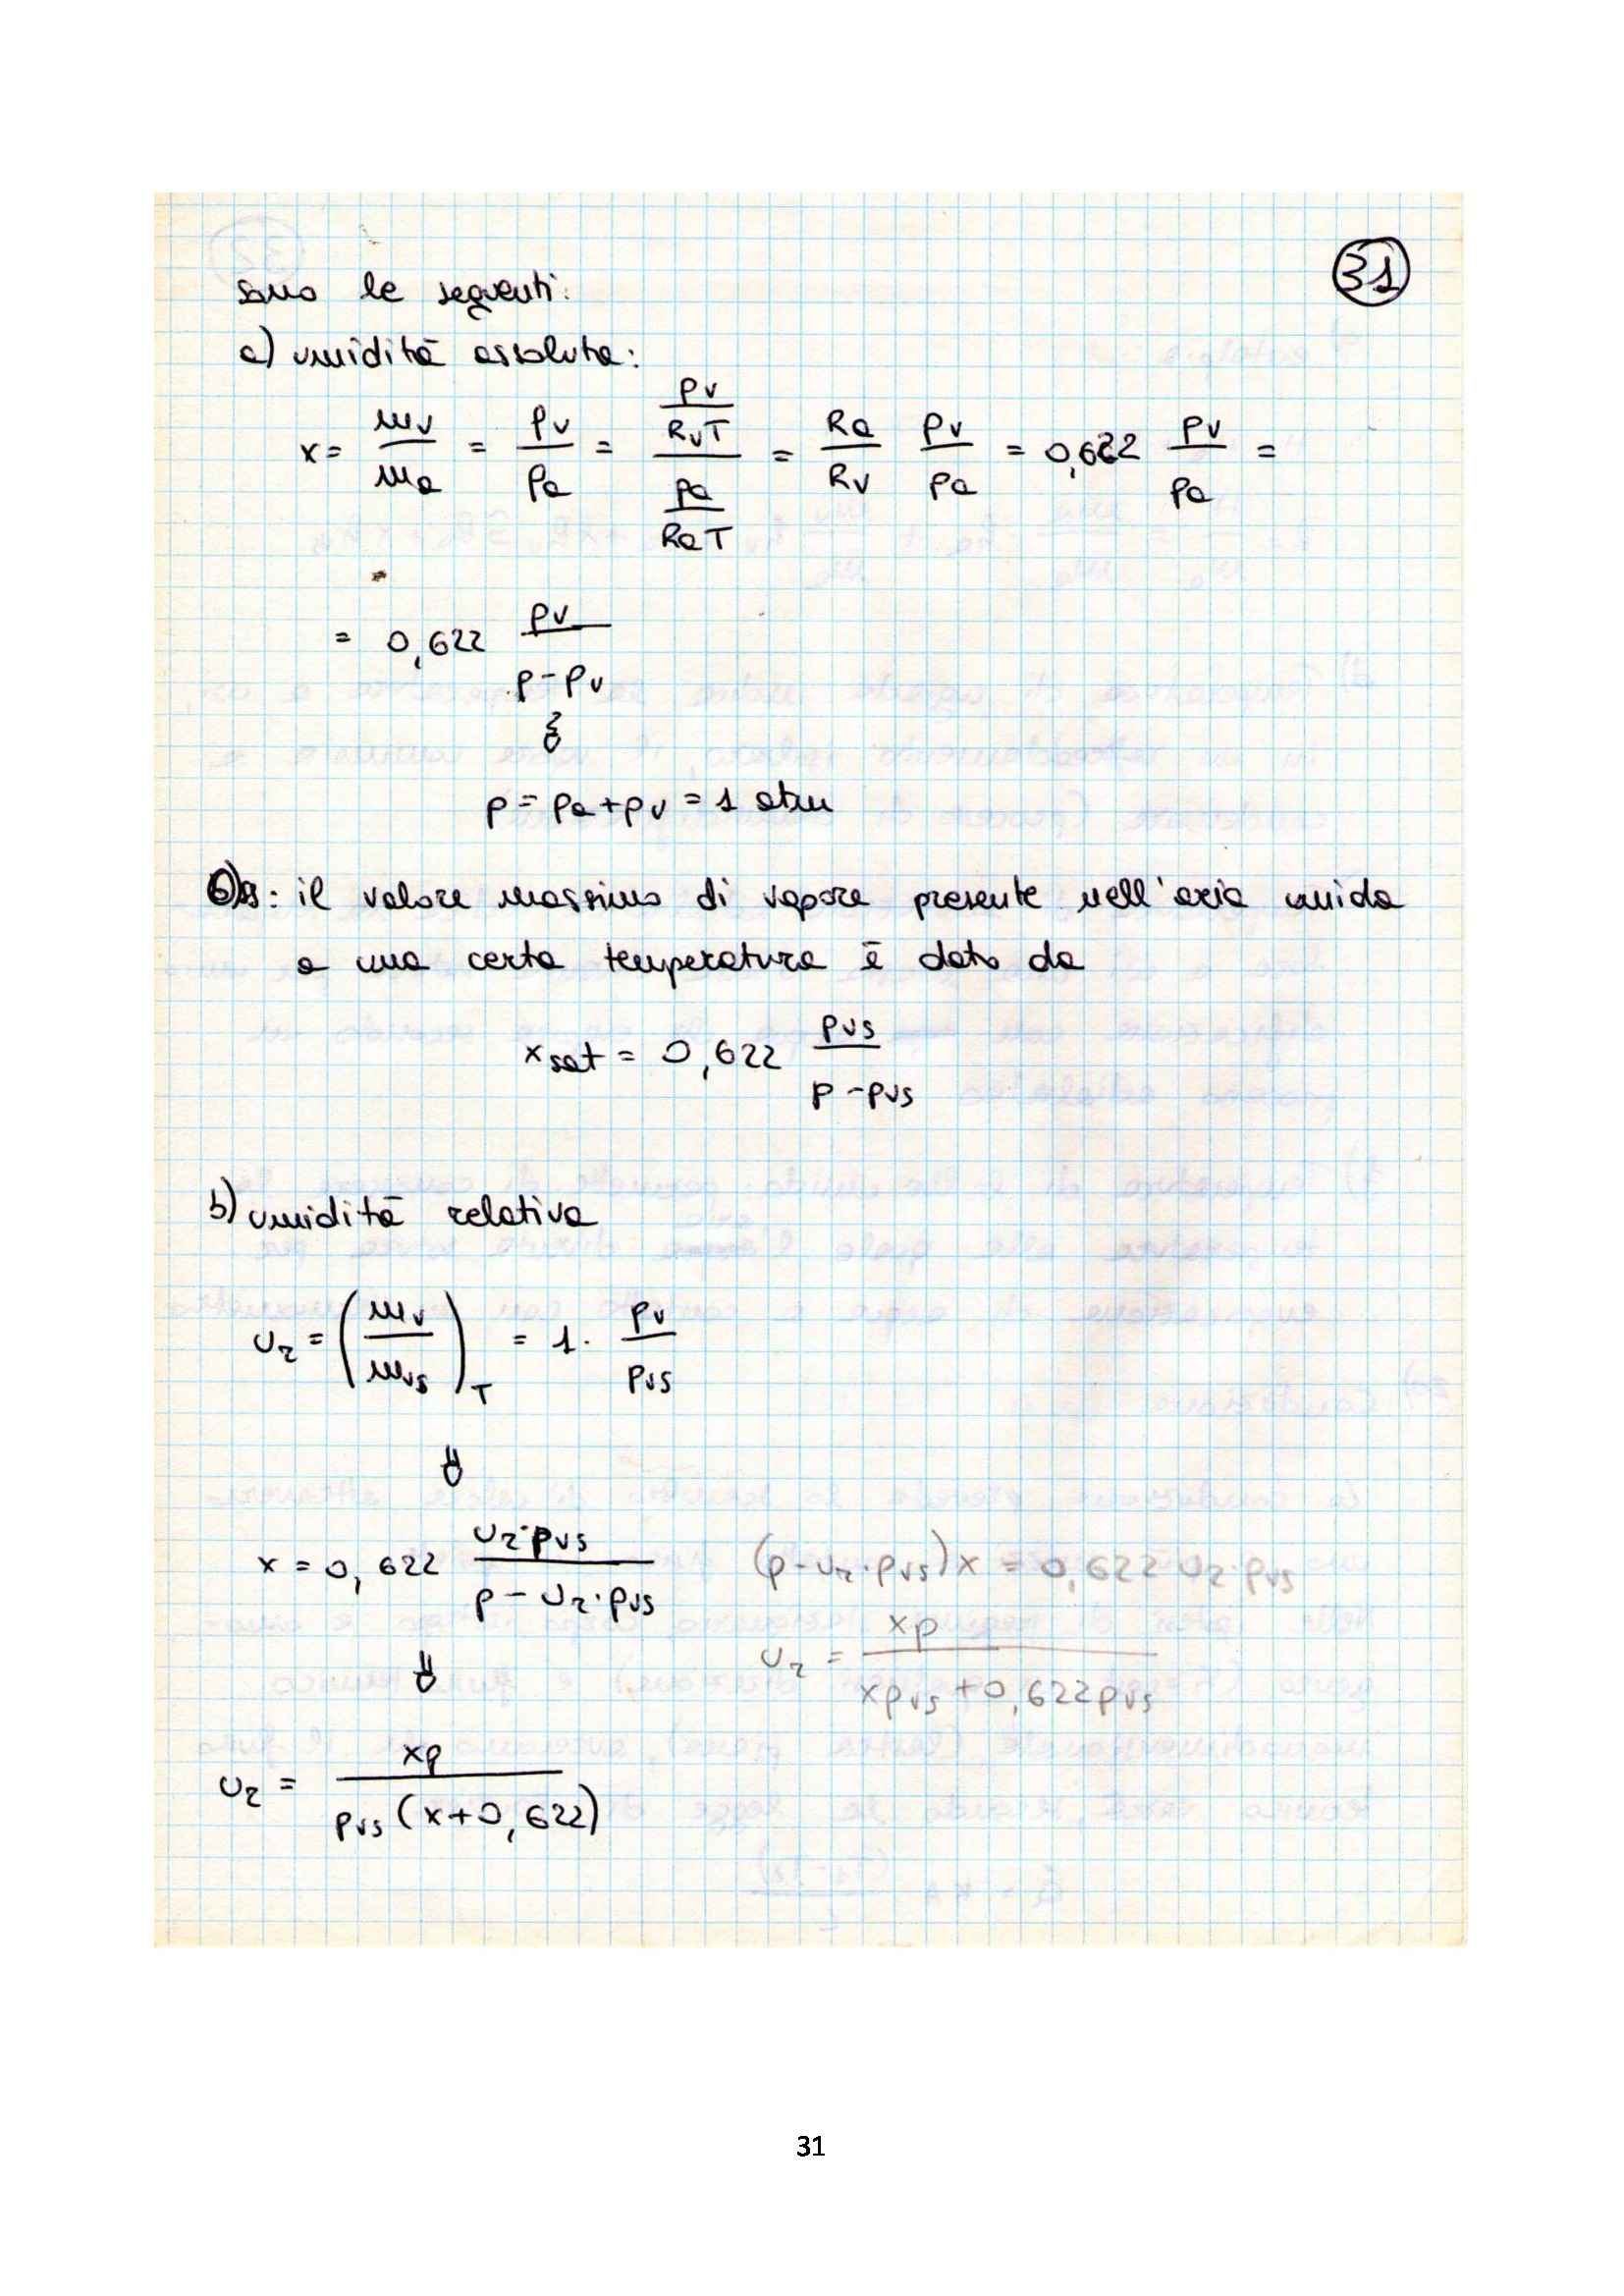 31
sono le seguenti:
a) umidità assoluta:
x = mv/ma = ρv/ρa = (pv/RvT)/(pa/RaT) = Ra/Rv pv/pa = 0,622 pv/pa =
= 0,622 pv/(p-pv)
p = pa+pv = 1 atm
Os: il valore massimo di vapore presente nell'aria umida
a una certa temperatura è dato da
xsat = 0,622 pvs/(p-pvs)
b) umidità relativa
ur = (mv/mvs)T = 1· pv/pvs
⇓
x = 0,622 ur·pvs/(p-ur·pvs)
(p-ur·pvs)x = 0,622 ur·pvs
ur = xp/(xpvs+0,622pvs)
⇓
ur = xp/(pvs(x+0,622))
31